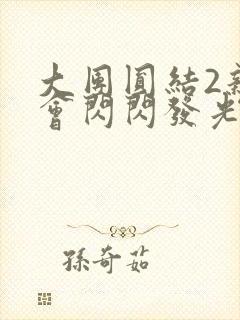 大團圓結2
會閃閃發光
孫奇茹